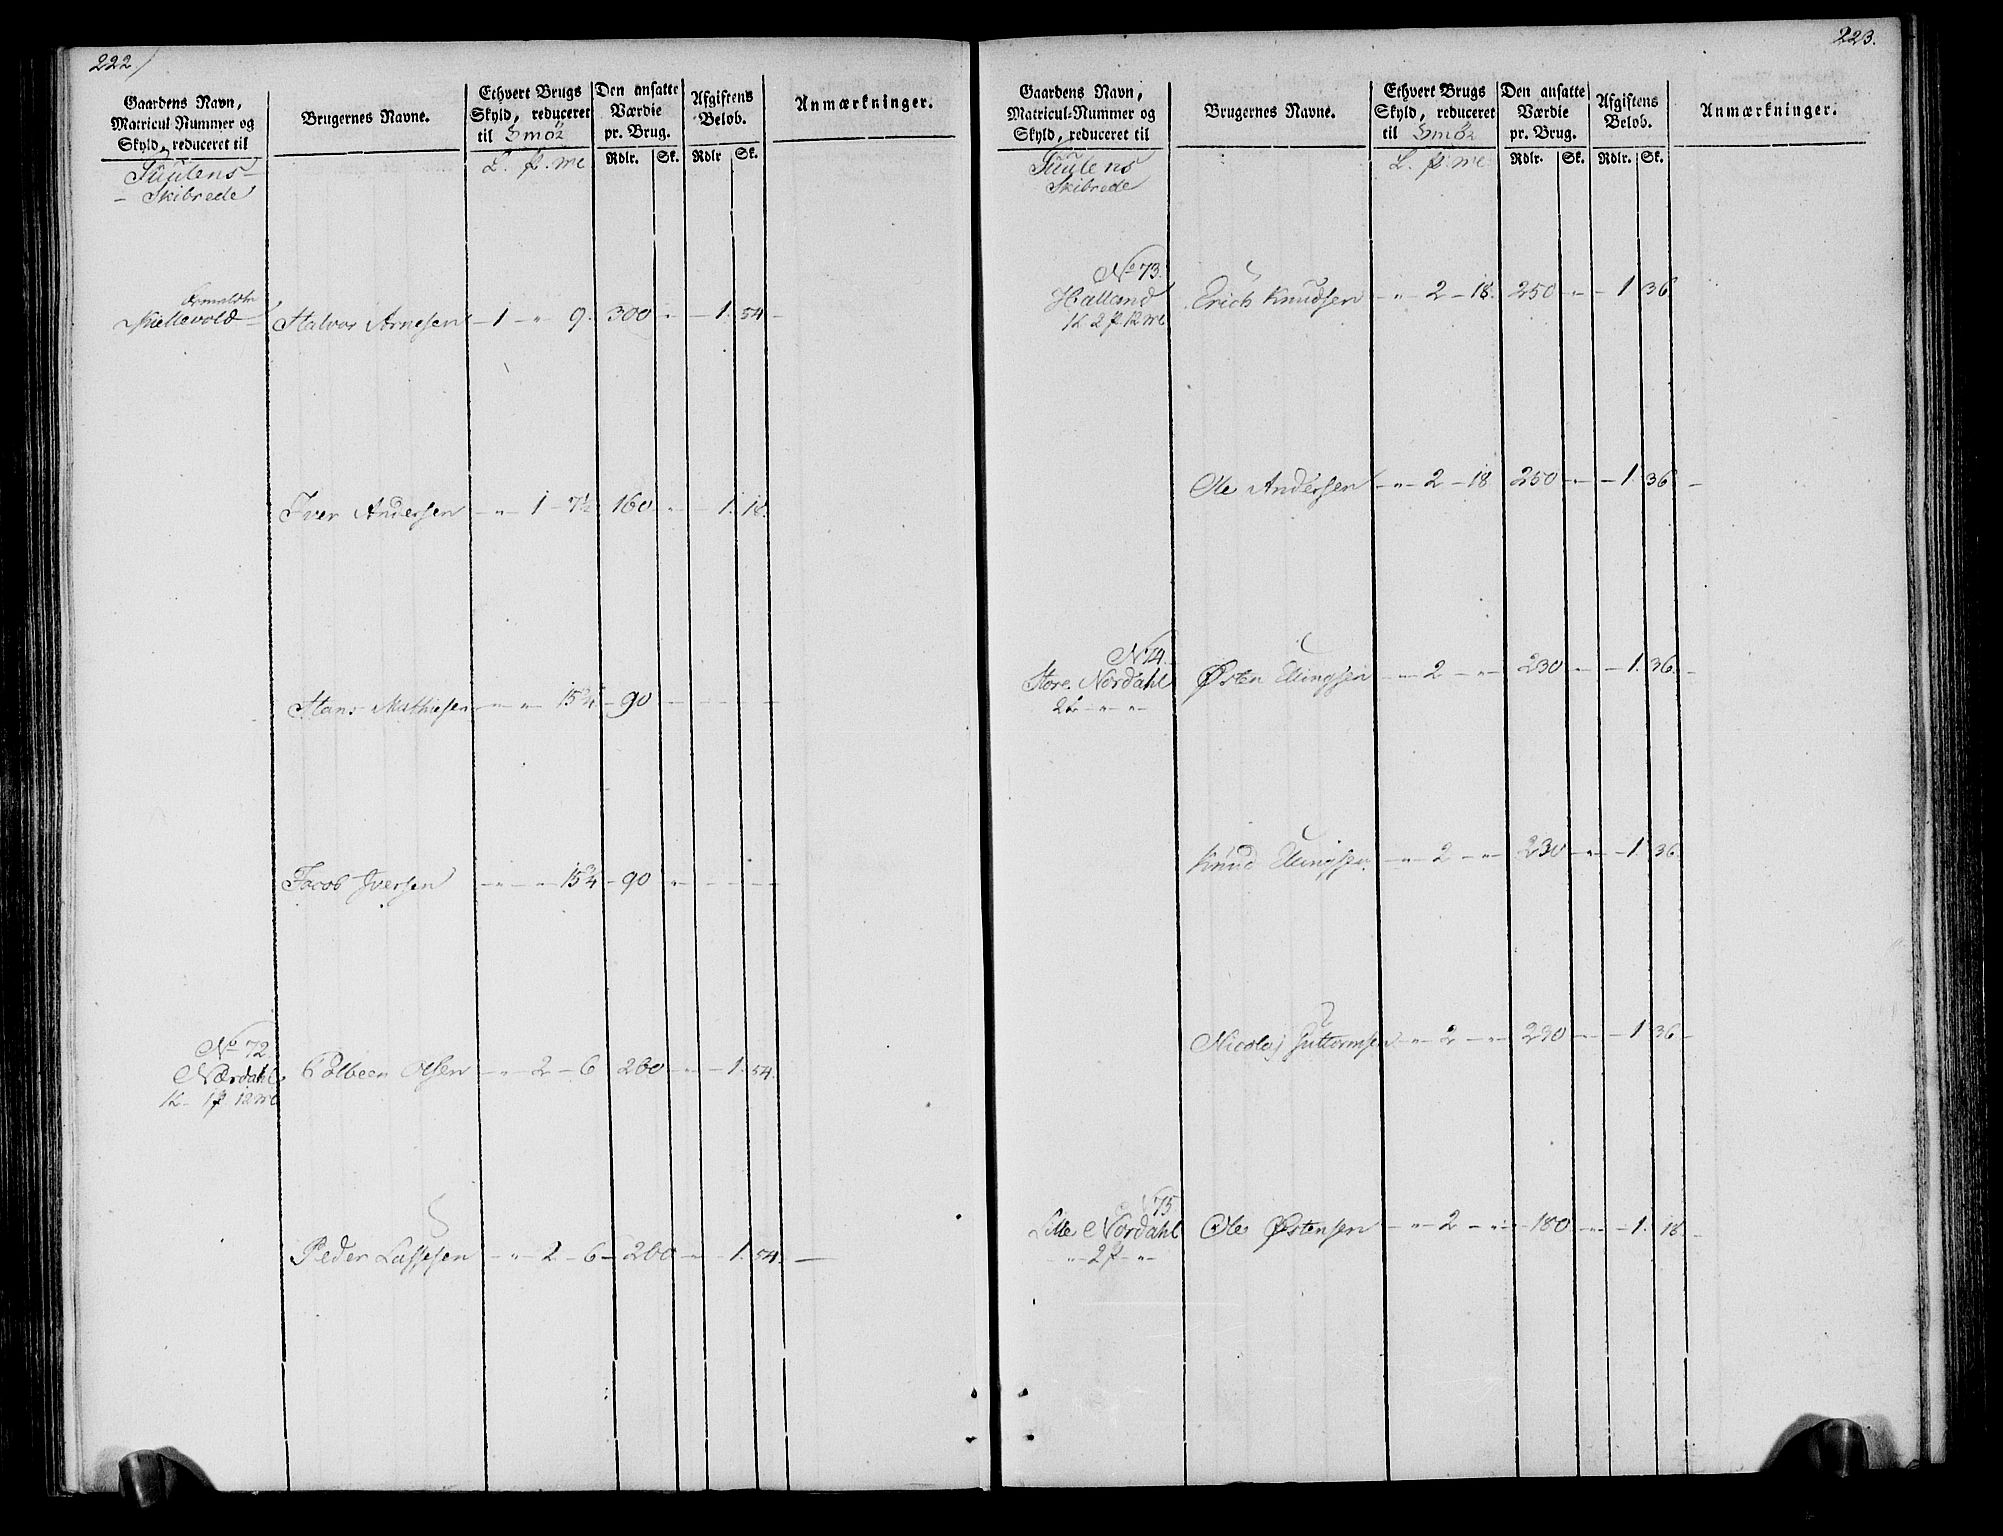 222.
Gaardens Navn,
Matricul-Nummer og
Skyld, reduceret til
Brugernes Navne.
Ethvert Brugs
Skyld, reduceret
til Smör
Den ansatte
Værdie
pr. Brug.
Afgiftens
Beløb.
Anmærkninger.
L. p. mk
Rdlr. Sk. Rdlr Sk.
Skibrede
Kiellevold Halvor Arnesen 1 " 9. 300 " 1. 54
Iver Andersen " 1 7½ 160 " 1. 18.
Hans Mathiesen " " 15¾ 90
Jacob Iversen " " 15¾ 90 "
No 72
Nordahl Olsen " 2 6 260 " 1. 54.
1L 1p 12mk
Peder Lassesen " 2 6 260 " 1. 54.
223.
Gaardens Navn,
Matricul-Nummer og
Skyld, reduceret til
Brugernes Navne.
Ethvert Brugs
Skyld, reduceret
til Smör
Den ansatte
Værdie
pr. Brug.
Afgiftens
Beløb.
Anmærkninger.
L. p. mk
Rdlr. Sk. Rdlr. Sk.
Skibrede
No 73.
Halland Erich Knudsen " 2 18. 250 " 1 36
1L 2p 12mk
Ole Andersen " 2 18 250 " 1. 36
No 74.
Store Nordahl Østen Ellingsen " 2 " 230 " 1. 36.
2L " "
Knud Ellingsen " 2 " 230 " 1. 36.
Nicolaj Guttormsen " 2 " 230 " 1 36
75
Lille Nordahl Ole Østensen " 2 " 180 " 1. 18.
" 2p "